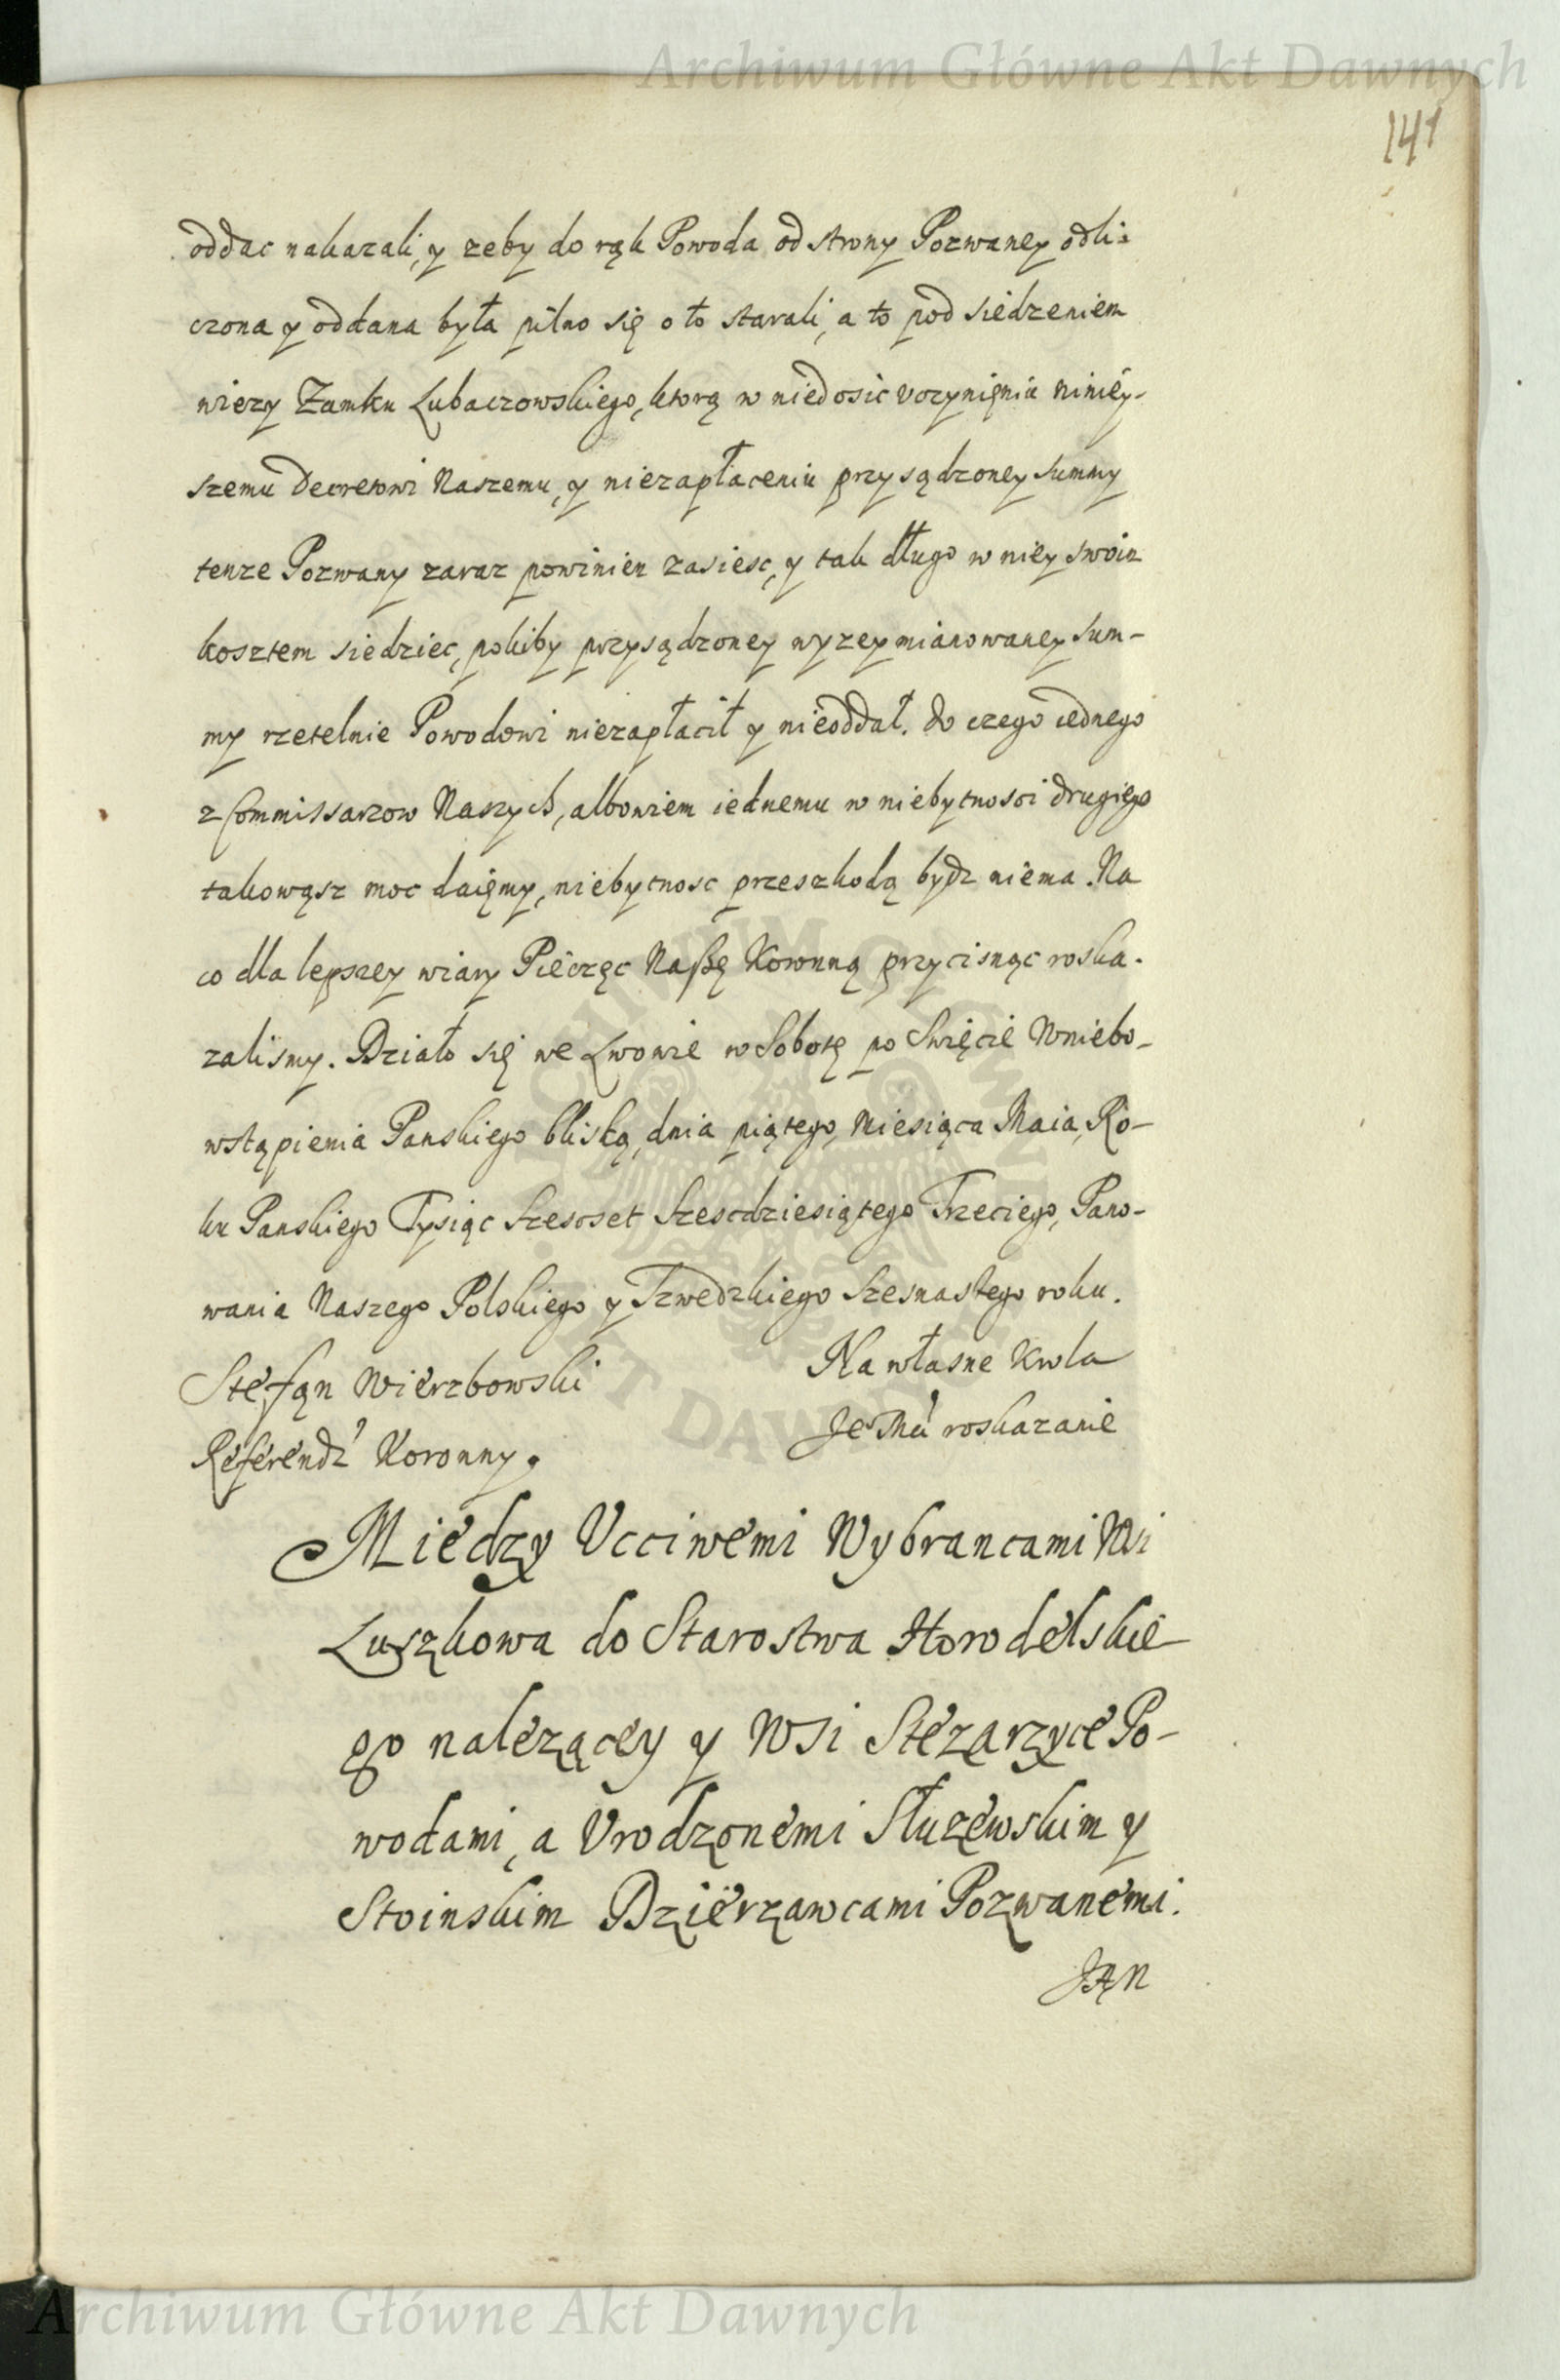 Archiwum Główne Akt Dawnych
141
oddac nakazali, y zeby do rąk Powoda od strony Pozwaney odli-
czona y oddana była pilno się o to starali, a to pod siedzeniem
wiezy Zamku Lubaczowskiego, ktorą w niedosic vczynięnia niniey-
szemu Decretowi Naszemu, y niezapłaceniu przysądzoney summy
tenze Pozwany zaraz powinien zasiesc, y tak długo w niey swoim
kosztem siedziec, pokiby przysądzoney wyzeymianowaney sum-
my rzetelnie Powodowi niezapłacił y nieoddał. do czego iednego
z Commissarzow Naszych, albowiem iednemu w niebytnosci drugiego
takowąsz moc daięmy, niebytnosc przeszkodą bydz niema. Na
co dla lepszey wiary Pieczęc Naszę Koronną przycisnąc roska-
zalismy. Działo się we Lwowie w Sobotę po Swięcie Wniebo-
wstąpienia Panskiego bliską, dnia piątego, Miesiąca Maia, Ro-
ku Panskiego Tysiąc Szescset Szescdziesiątego Trzeciego, Pano-
wania Naszego Polskiego y Szwedzkiego Szesnastego roku.
Stefąn Wierzbowski
Referendz Koronny.
Na własne Krola
JeMci roskazanie
Miedzy Vcciwemi Wybrancami Wsi
Luszkowa do Starostwa Horodelskie
go nalezącey y Wsi Stezarzyce Po-
wodami, a Vrodzonemi Słuzewskim y
Stoinskim Dzierzawcami Pozwanemi.
Jąn
Archiwum Główne Akt Dawnych